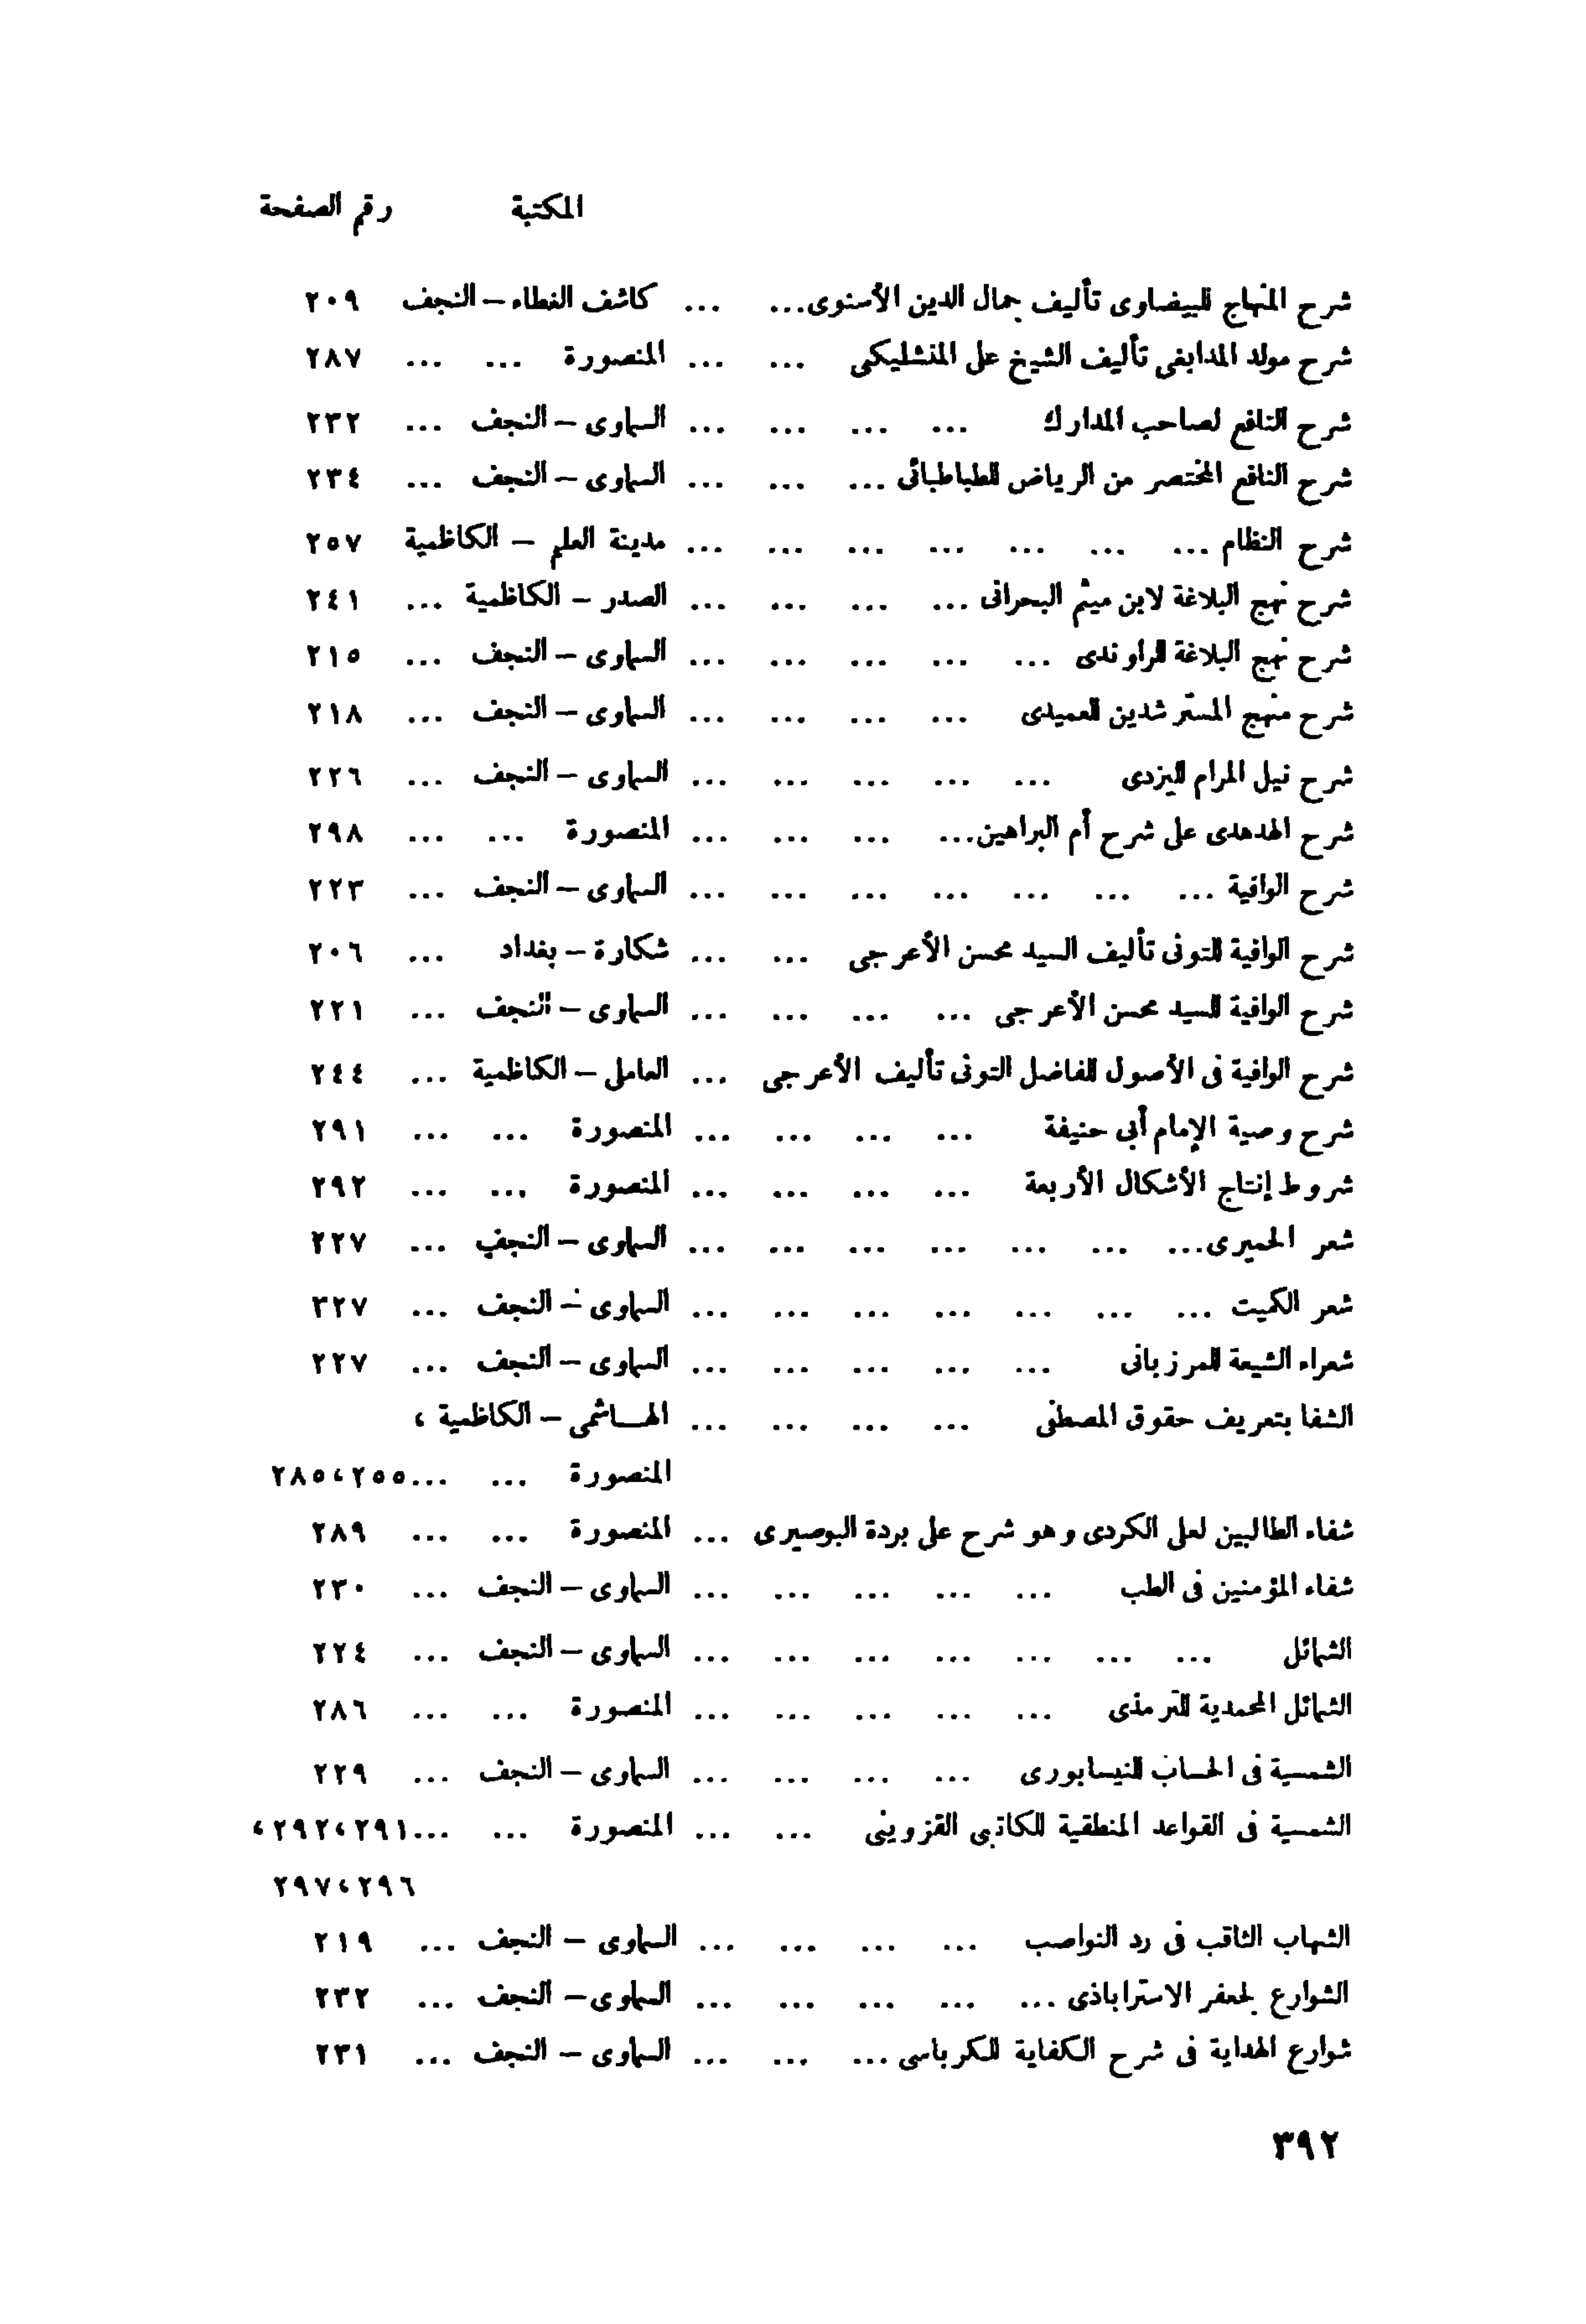 المكتبة رقم الصفحة
شرح المنهاج للبيضاوى تأليف جمال الدين الأسنوى... ... كاشف الغطاء – النجف ٢٠٩
شرح مولد المدابغى تأليف الشيخ على المنشليكى ... ... المنصورة ... ... ٢٨٧
شرح النافع لصاحب المدارك ... ... ... ... السماوى – النجف ... ٢٣٢
شرح النافع المختصر من الرياض للطباطبائى ... ... ... السماوى – النجف ... ٢٣٤
شرح النظام ... ... ... ... ... ... ... مدينة العلم – الكاظمية ٢٥٧
شرح نهج البلاغة لابن ميثم البحرانى ... ... ... ... الصدر – الكاظمية ... ٢٤١
شرح نهج البلاغة للراوندى ... ... ... ... ... السماوى – النجف ... ٢١٥
شرح منهج المسترشدين للعميدى ... ... ... ... السماوى – النجف ... ٢١٨
شرح نيل المرام لليزدى ... ... ... ... ... السماوى – النجف ... ٢٢٦
شرح الهدهدى على شرح أم البراهين... ... ... ... المنصورة ... ... ٢٩٨
شرح الوافية ... ... ... ... ... ... ... السماوى – النجف ... ٢٢٣
شرح الوافية للتونى تأليف السيد محسن الأعرجى ... ... شكارة – بغداد ... ٢٠٦
شرح الوافية للسيد محسن الأعرجى ... ... ... ... السماوى – النجف ... ٢٢١
شرح الوافية فى الأصول للفاضل التونى تأليف الأعرجى ... العاملى – الكاظمية ... ٢٤٤
شرح وصية الإمام أبى حنيفة ... ... ... ... المنصورة ... ... ٢٩١
شروط إنتاج الأشكال الأربعة ... ... ... ... المنصورة ... ... ٢٩٢
شعر الحميرى... ... ... ... ... ... ... السماوى – النجف ... ٢٢٧
شعر الكميت ... ... ... ... ... ... ... السماوى – النجف ... ٣٢٧
شعراء الشيعة للمرزبانى ... ... ... ... ... السماوى – النجف ... ٢٢٧
الشفا بتعريف حقوق المصطفى ... ... ... ... الهـاشمى – الكاظمية ،
المنصورة ... ...٢٨٥،٢٥٥
شفاء الطالبين لعلى الكردى وهو شرح على بردة البوصيرى ... المنصورة ... ... ٢٨٩
شفاء المؤمنين فى الطب ... ... ... ... ... السماوى – النجف ... ٢٣٠
الشمائل ... ... ... ... ... ... ... السماوى – النجف ... ٢٢٤
الشمائل المحمدية للترمذى ... ... ... ... ... المنصورة ... ... ٢٨٦
الشمسية فى الحساب للنيسابورى ... ... ... ... السماوى – النجف ... ٢٢٩
الشمسية فى القواعد المنطقية للكاتبى القزوينى ... ... المنصورة ... ...٢٩٢،٢٩١،
٢٩٧،٢٩٦
الشهاب الثاقب فى رد النواصب ... ... ... ... السماوى – النجف ... ٢١٩
الشوارع لجعفر الاستراباذى ... ... ... ... ... السماوى – النجف ... ٢٣٢
شوارع الهداية فى شرح الكفاية للكرباسى ... ... ... السماوى – النجف ... ٢٣١
٣٩٢